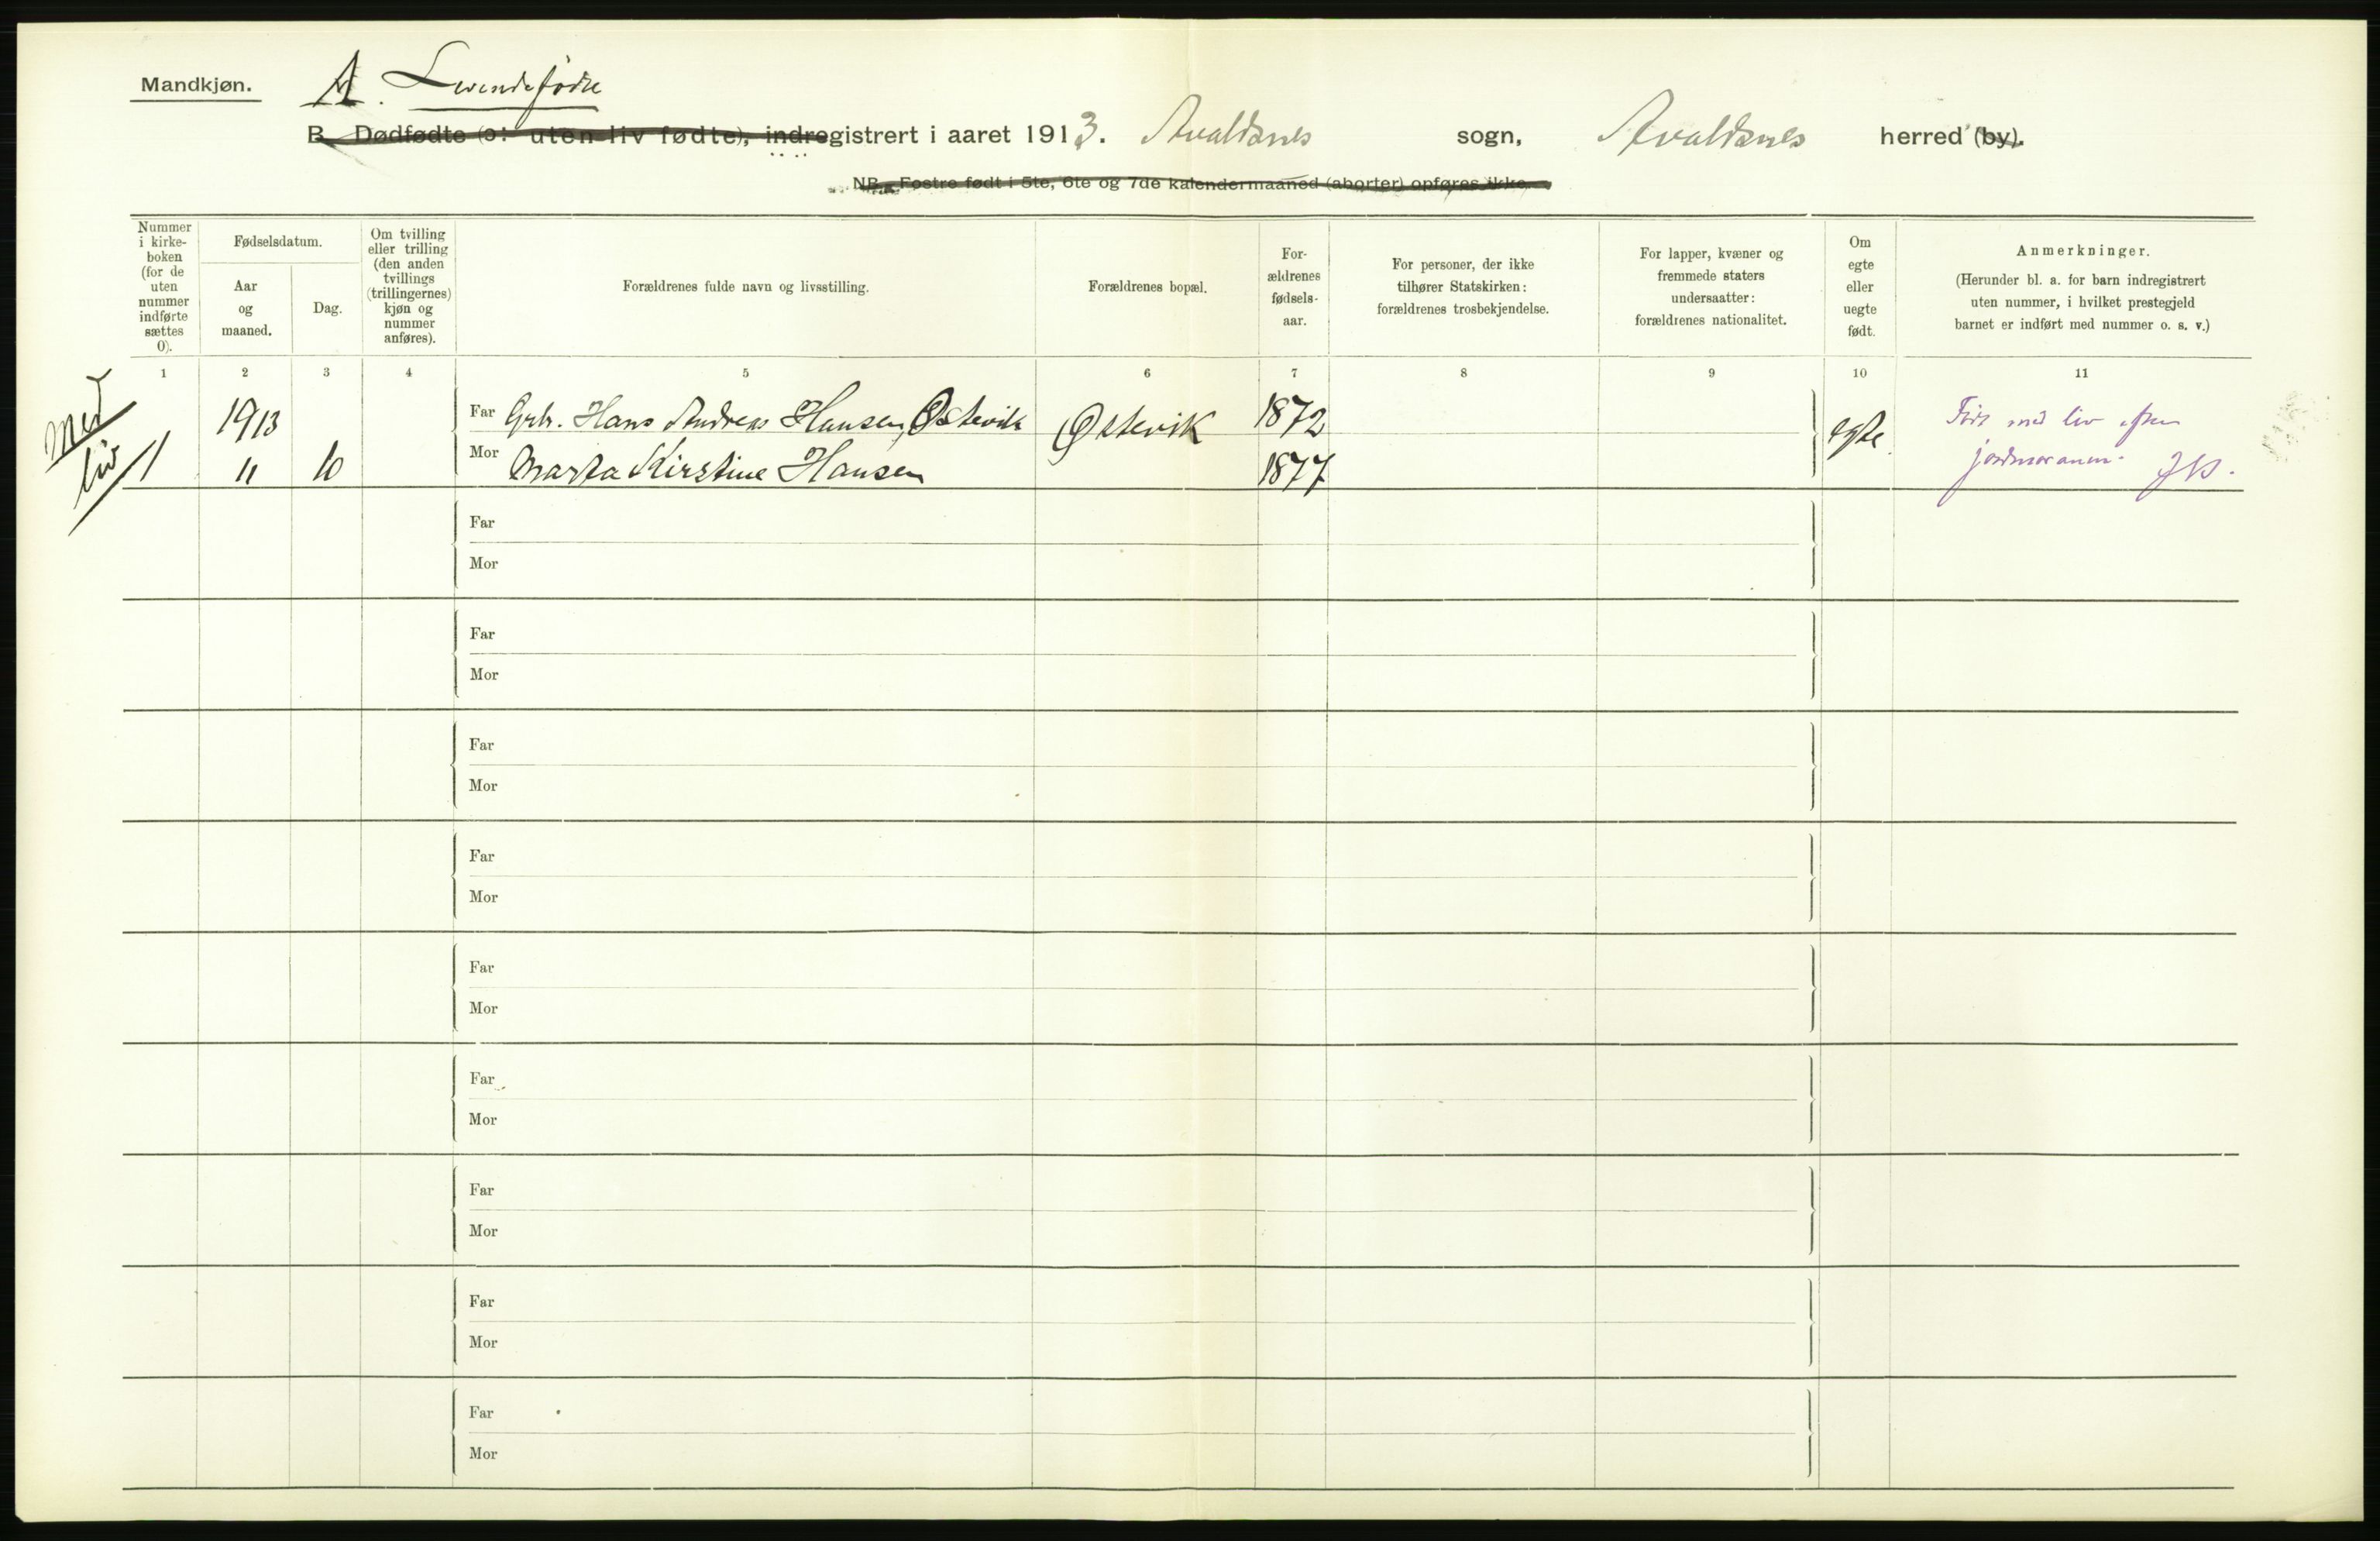 Mandkjøn.
A. Levendefødte
B. Dødfødte (ɔ: uten liv fødte), indregistrert i aaret 1913. Avaldsnes sogn, Avaldsnes herred (by).
NB. Fostre født i 5te, 6te og 7de kalendermaaned (aborter) opføres ikke.
Nummer i kirke-boken (for de uten nummer indførte sættes 0).
Fødselsdatum.
Aar og maaned.
Dag.
Om tvilling eller trilling (den anden tvillings (trillingernes) kjøn og nummer anføres).
Forældrenes fulde navn og livsstilling.
Forældrenes bopæl.
For-ældrenes fødsels-aar.
For personer, der ikke tilhører Statskirken: forældrenes trosbekjendelse.
For lapper, kvæner og fremmede staters undersaatter: forældrenes nationalitet.
Om egte eller uegte født.
Anmerkninger.
(Herunder bl. a. for barn indregistrert uten nummer, i hvilket prestegjeld barnet er indført med nummer o. s. v.)
1 2 3 4 5 6 7 8 9 10 11
Med liv
1913 Far Grb. Hans Andreas Hansen, Østevik Østevik 1872 egte. Født med liv efter
1 11 10 Mor Marta Kirstine Hansen 1877 jordmoranm.
Far
Mor
Far
Mor
Far
Mor
Far
Mor
Far
Mor
Far
Mor
Far
Mor
Far
Mor
Far
Mor